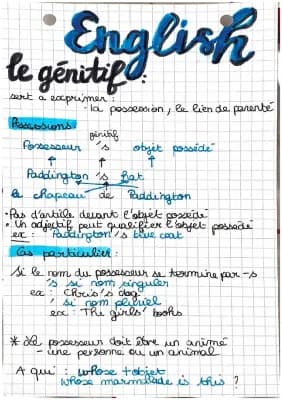 English
le génitif :
sert a exprimer :
- la possession, le lien de parenté
Possessions
génitif
Possesseur 's objet possédé
Paddington 's hat
le chapeau de Paddington
• Pas d'article devant l'objet possédé
• Un adjectif peut qualifier l'objet possédé
ex : Paddington's blue coat
Cas particulier :
Si le nom du possesseur se termine par -s
's si nom singulier
ex : Chris's dog
' si nom pluriel
ex : The girls' books
* Le possesseur doit être un animé
- une personne ou un animal
A qui : whose + objet
whose marmalade is this ?